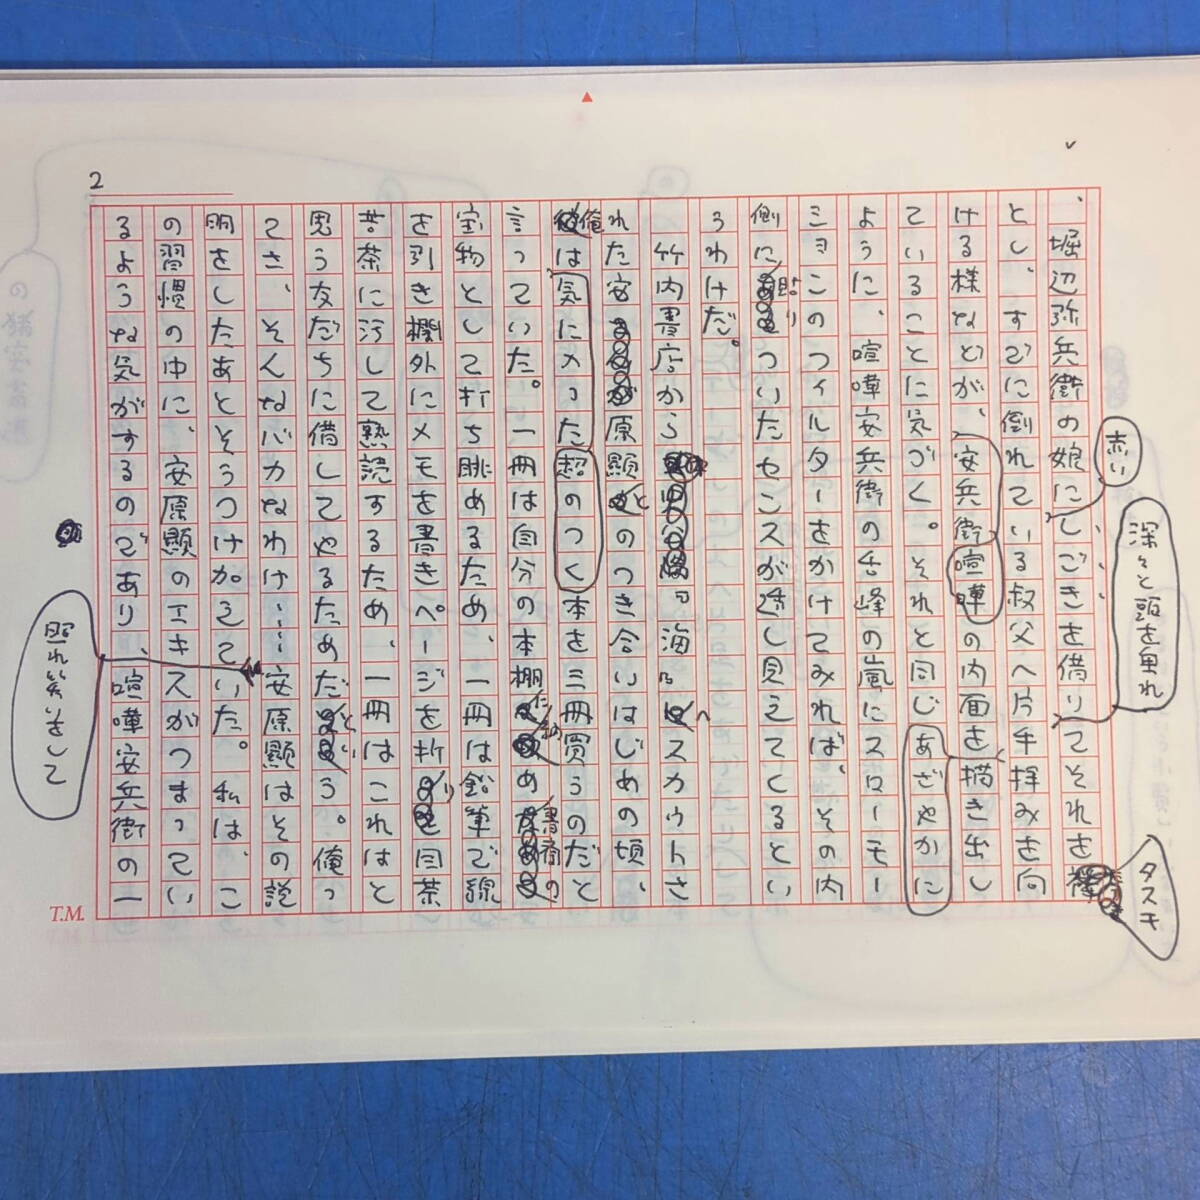 2
、堀辺弥兵衛の娘にしごきを借りてそれを
赤い
深々と頭を垂れ
タスキ
とし、すでに倒れている叔父へ片手拝みを向
ける様などが、安兵衛喧嘩の内面を描き出し
ていることに気づく。それと同じあざやかに
ように、喧嘩安兵衛の舌峰の嵐にスローモー
ションのフィルターをかけてみれば、その内
側に貼りついたセンスが透し見えてくるとい
うわけだ。
竹内書店から『海』へスカウトさ
れた安原顯とのつき合いはじめの頃、
俺は気に入った超のつく本を三冊買うのだと
言っていた。一冊は自分の本棚に秘め書斎の
宝物として打ち眺めるため、一冊は鉛筆で線
を引き欄外にメモを書きページを折り目茶
苦茶に汚して熟読するため、一冊はこれはと
思う友だちに借してやるためだという。俺っ
てさ、そんなバカなわけ……安原顯はその説
明をしたあとそうつけ加えていた。私は、こ
の習慣の中に、安原顯のエキスがつまってい
るような気がするのであり、喧嘩安兵衛の一
照れ笑いをして
T.M.